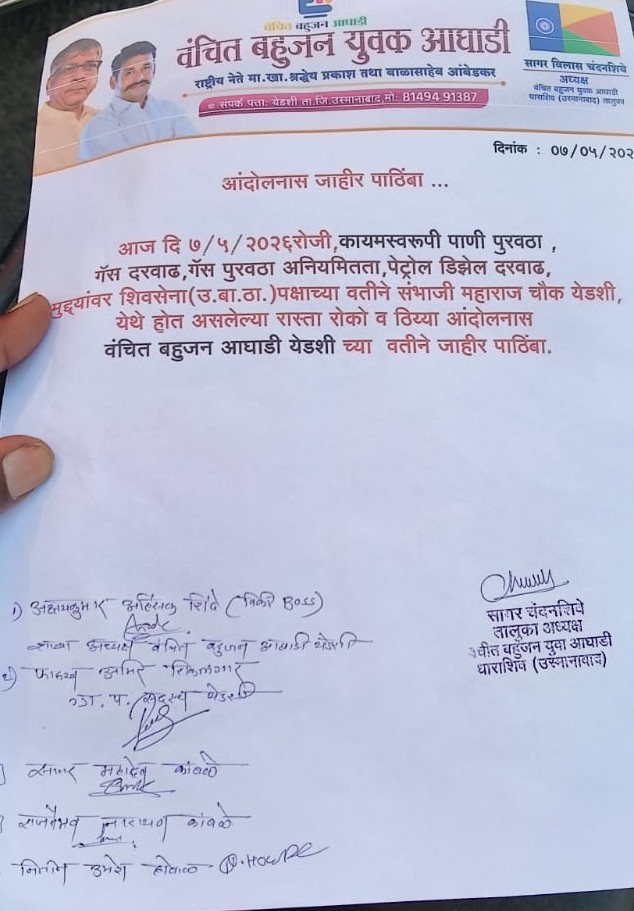 वंचित बहुजन आघाडी
वंचित बहुजन युवक आघाडी
राष्ट्रीय नेते मा.खा.श्रद्धेय प्रकाश तथा बाळासाहेब आंबेडकर
संपर्क पत्ता: येडशी ता.जि.उस्मानाबाद,मो: 81494 91387
सागर विलास चंदनशिवे
अध्यक्ष
वंचित बहुजन युवक आघाडी
धाराशिव (उस्मानाबाद) तालुका
दिनांक : ०७/०५/२०२
आंदोलनास जाहीर पाठिंबा ...
आज दि ७/५/२०२६रोजी,कायमस्वरूपी पाणी पुरवठा ,
गॅस दरवाढ,गॅस पुरवठा अनियमितता,पेट्रोल डिझेल दरवाढ,
मुद्द्यांवर शिवसेना(उ.बा.ठा.)पक्षाच्या वतीने संभाजी महाराज चौक येडशी,
येथे होत असलेल्या रास्ता रोको व ठिय्या आंदोलनास
वंचित बहुजन आघाडी येडशी च्या वतीने जाहीर पाठिंबा.
१) अक्षयकुमार अहिंसक शिंदे (विकी BOSS)
शाखा अध्यक्ष वंचित बहुजन आघाडी येडशी
२)
ग्रा. प. सदस्य येडशी
सागर महादेव कांबळे
नारायण कांबळे
नितीन उमेश होवाळ
सागर चंदनशिवे
तालुका अध्यक्ष
वंचीत बहुजन युवा आघाडी
धाराशिव (उस्मानाबाद)